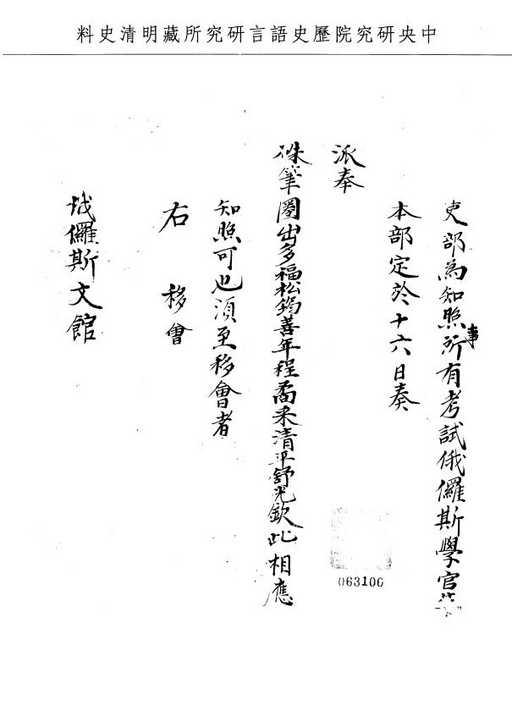 中央研究院歷史語言研究所藏明清史料
吏部為知照事所有考試俄儸斯學官
本部定於十六日奏
派奉
硃筆圈出多福松筠善年程喬采清平舒光欽此相應
知照可也須至移會者
右 移會
俄儸斯文館
063106